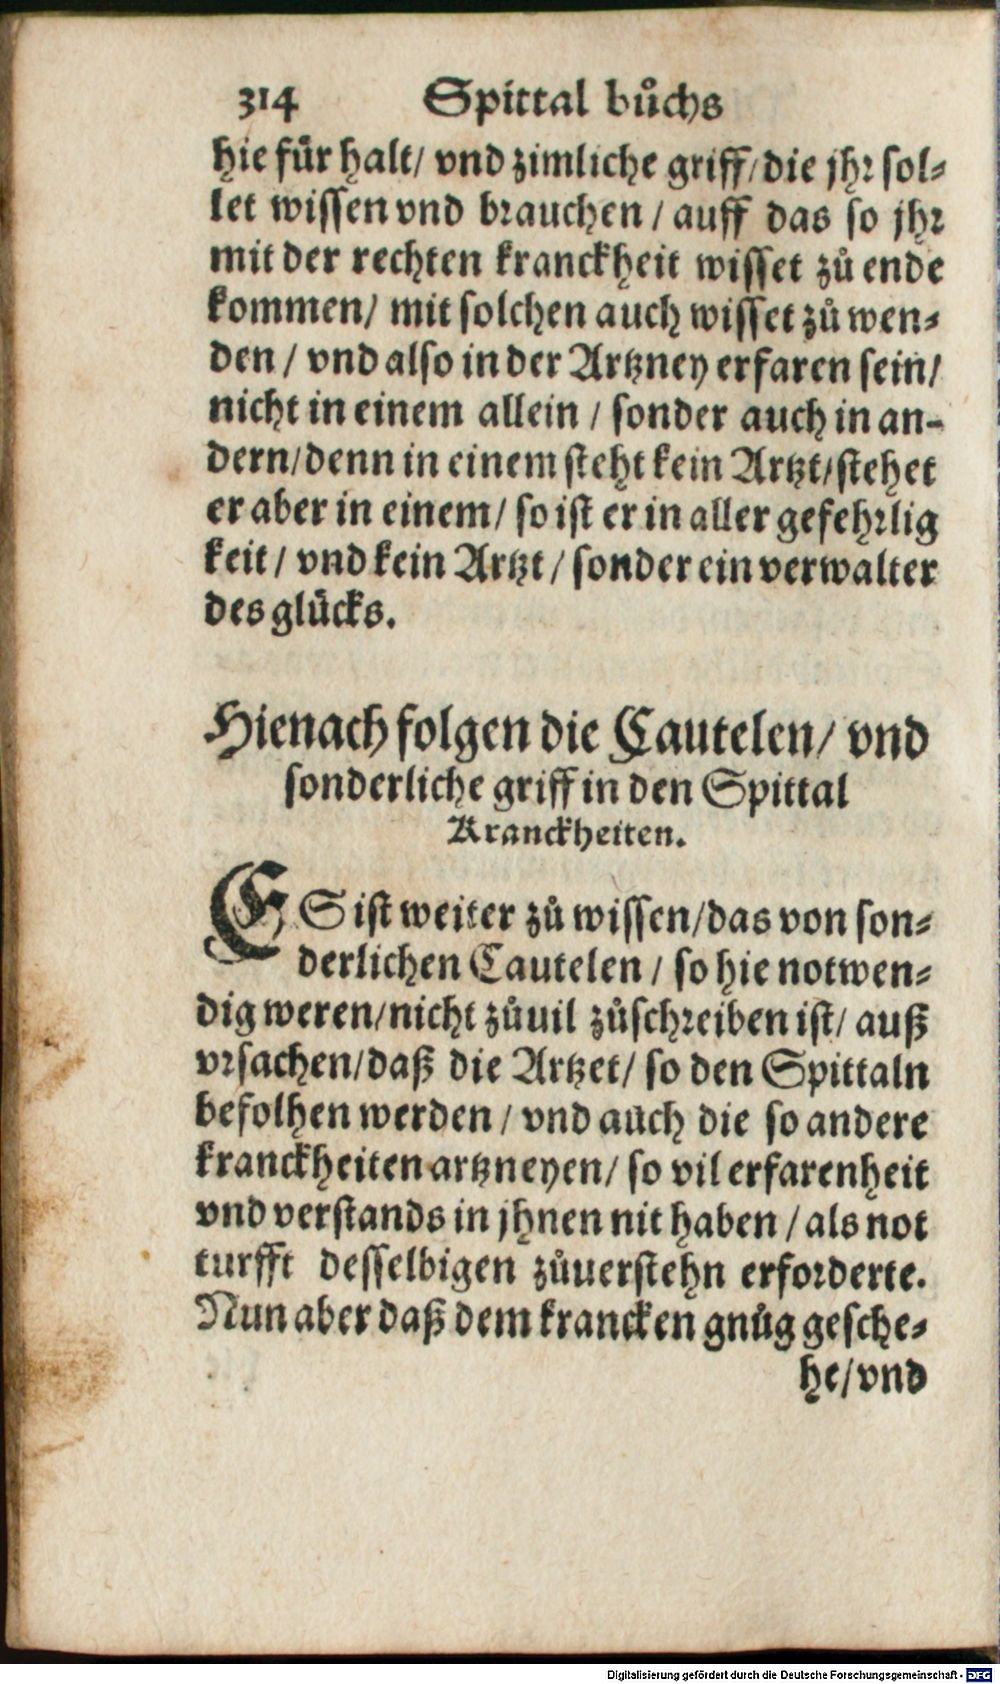 314 Spittal bůchs
hie für halt/ vnd zimliche griff/die jhr sol-
let wissen vnd brauchen / auff das so jhr
mit der rechten kranckheit wisset zů ende
kommen/ mit solchen auch wisset zů wen-
den / vnd also in der Artzney erfaren sein/
nicht in einem allein / sonder auch in an-
dern/denn in einem steht kein Artzt/stehet
er aber in einem/ so ist er in aller gefehrlig
keit / vnd kein Artzt / sonder ein verwalter
des glücks.
Hienach folgen die Cautelen/ vnd
sonderliche griff in den Spittal
Kranckheiten.
ES ist weiter zů wissen/das von son-
derlichen Cautelen / so hie notwen-
dig weren/nicht zůuil zůschreiben ist/ auß
vrsachen/daß die Artzet/ so den Spittaln
befolhen werden / vnd auch die so andere
kranckheiten artzneyen/ so vil erfarenheit
vnd verstands in jhnen nit haben / als not
turfft desselbigen zůuerstehn erforderte.
Nun aber daß dem krancken gnůg gesche-
he/vnd
Digitalisierung gefördert durch die Deutsche Forschungsgemeinschaft - DFG